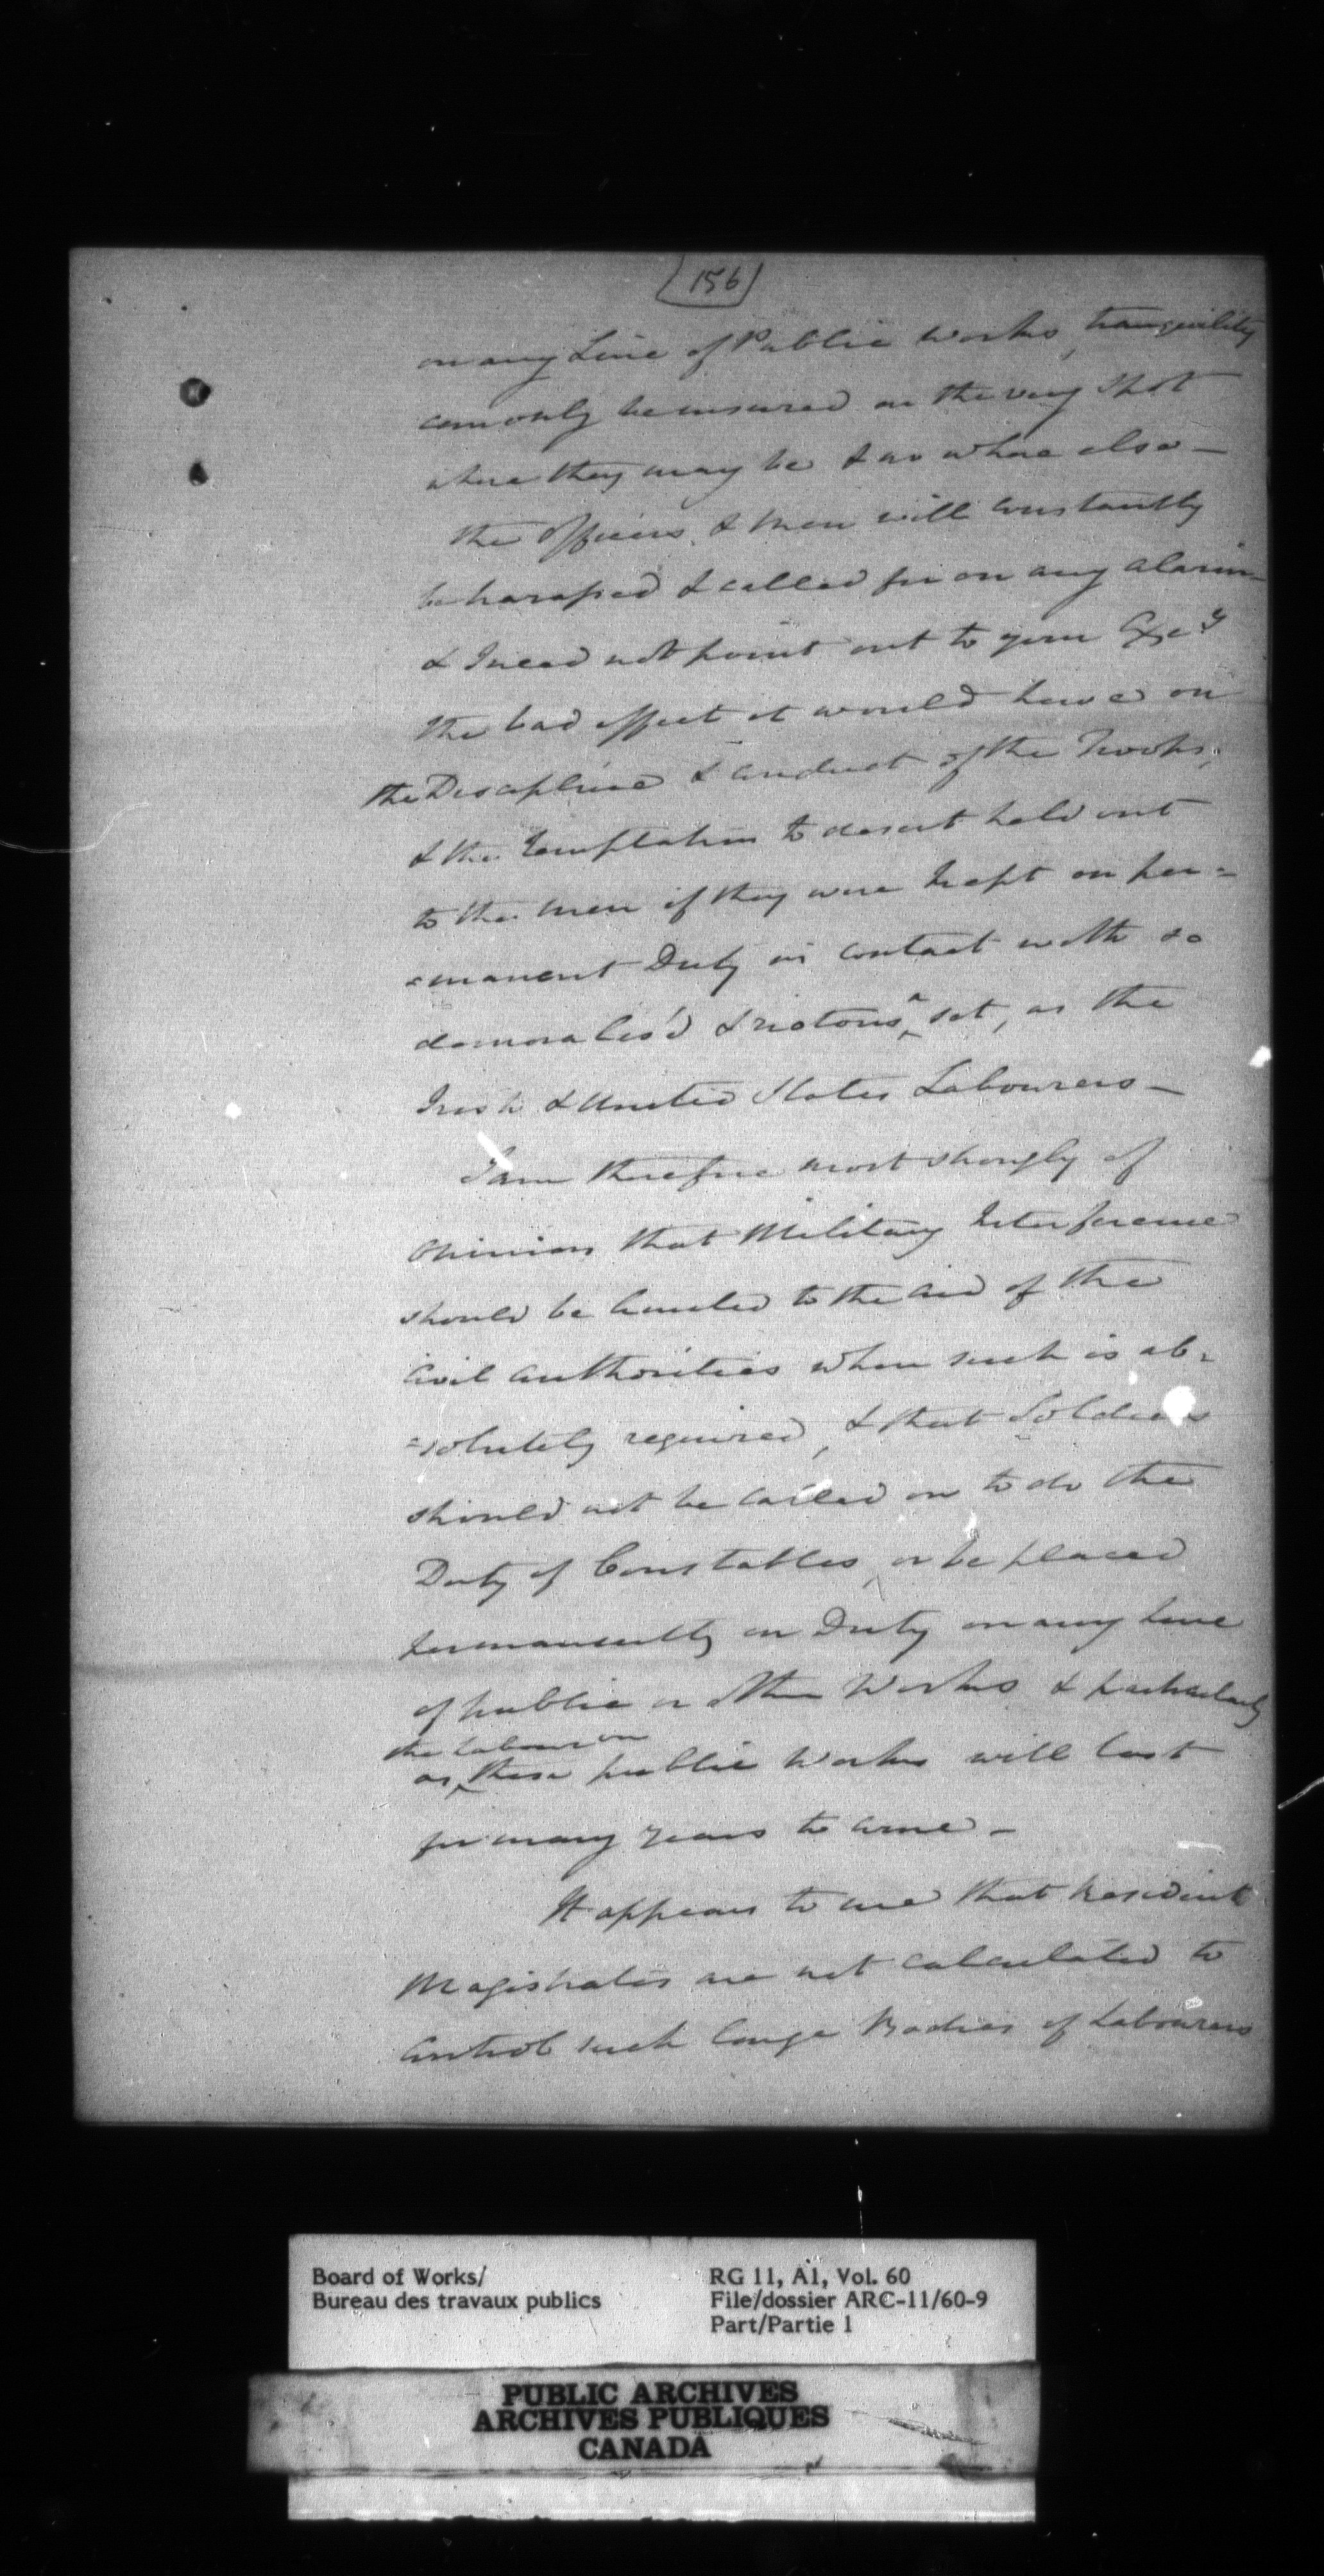 156
on any Line of Public Works, tranquility
can only be ensured on the very spot
where they may be & no where else —
the Officers & Men will constantly
be harassed & called for on any alarm —
& I need not point out to your Excy
the bad effect it would have on
the Discipline & conduct of the Troops,
& the temptation to desert held out
to the men if they were kept on per=
=manent Duty in contact with so
demoralis'd & riotous a set, as the
Irish & United States Labourers —
I am therefore most strongly of
opinion that Military Interference
should be limited to the aid of the
Civil authorities when such is ab=
=solutely required, & that Soldiers
should not be called on to do the
Duty of Constables, or be placed
permanently on Duty on any Line
of public or other Works & particularly
the labour on
as these public Works will last
for many years to come —
It appears to me that Resident
Magistrates are not calculated to
control such large Bodies of Labourers
Board of Works/
Bureau des travaux publics
RG 11, A1, Vol. 60
File/dossier ARC-11/60-9
Part/Partie 1
PUBLIC ARCHIVES
ARCHIVES PUBLIQUES
CANADA